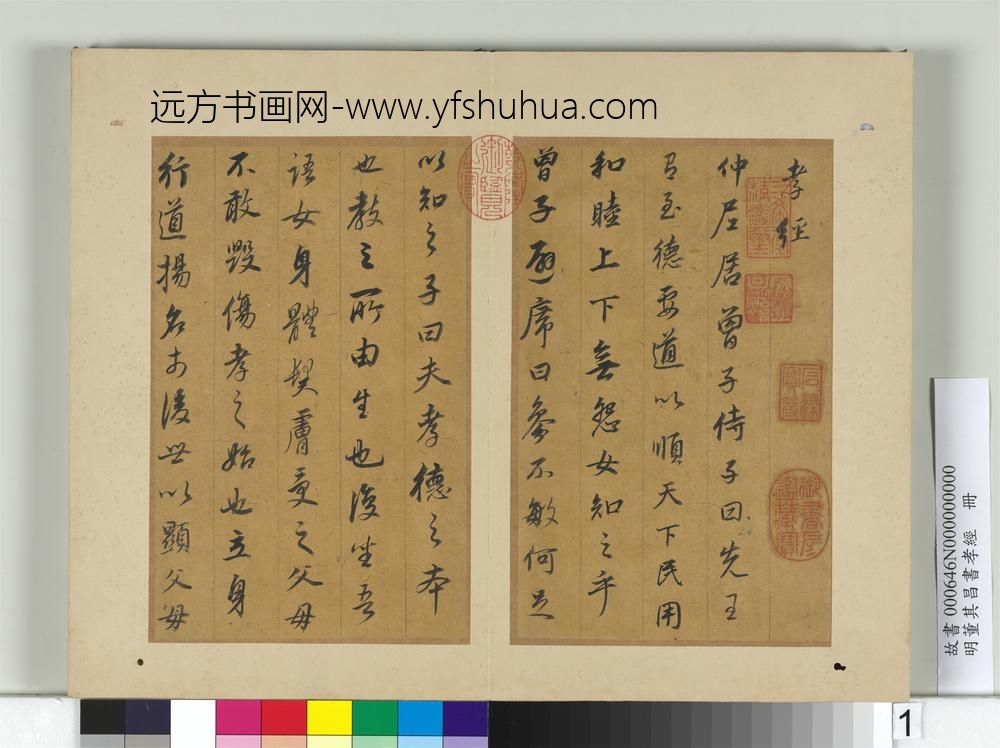 远方书画网-www.yfshuhua.com
孝經
仲尼居曾子侍子曰先王
有至德要道以順天下民用
和睦上下無怨女知之乎
曾子避席曰參不敏何足
以知之子曰夫孝德之本
也教之所由生也復坐吾
語女身體髮膚受之父母
不敢毀傷孝之始也立身
行道揚名於後世以顯父母
御書房鑑藏寶
故書 000646N000000000 冊
明董其昌書孝經
1